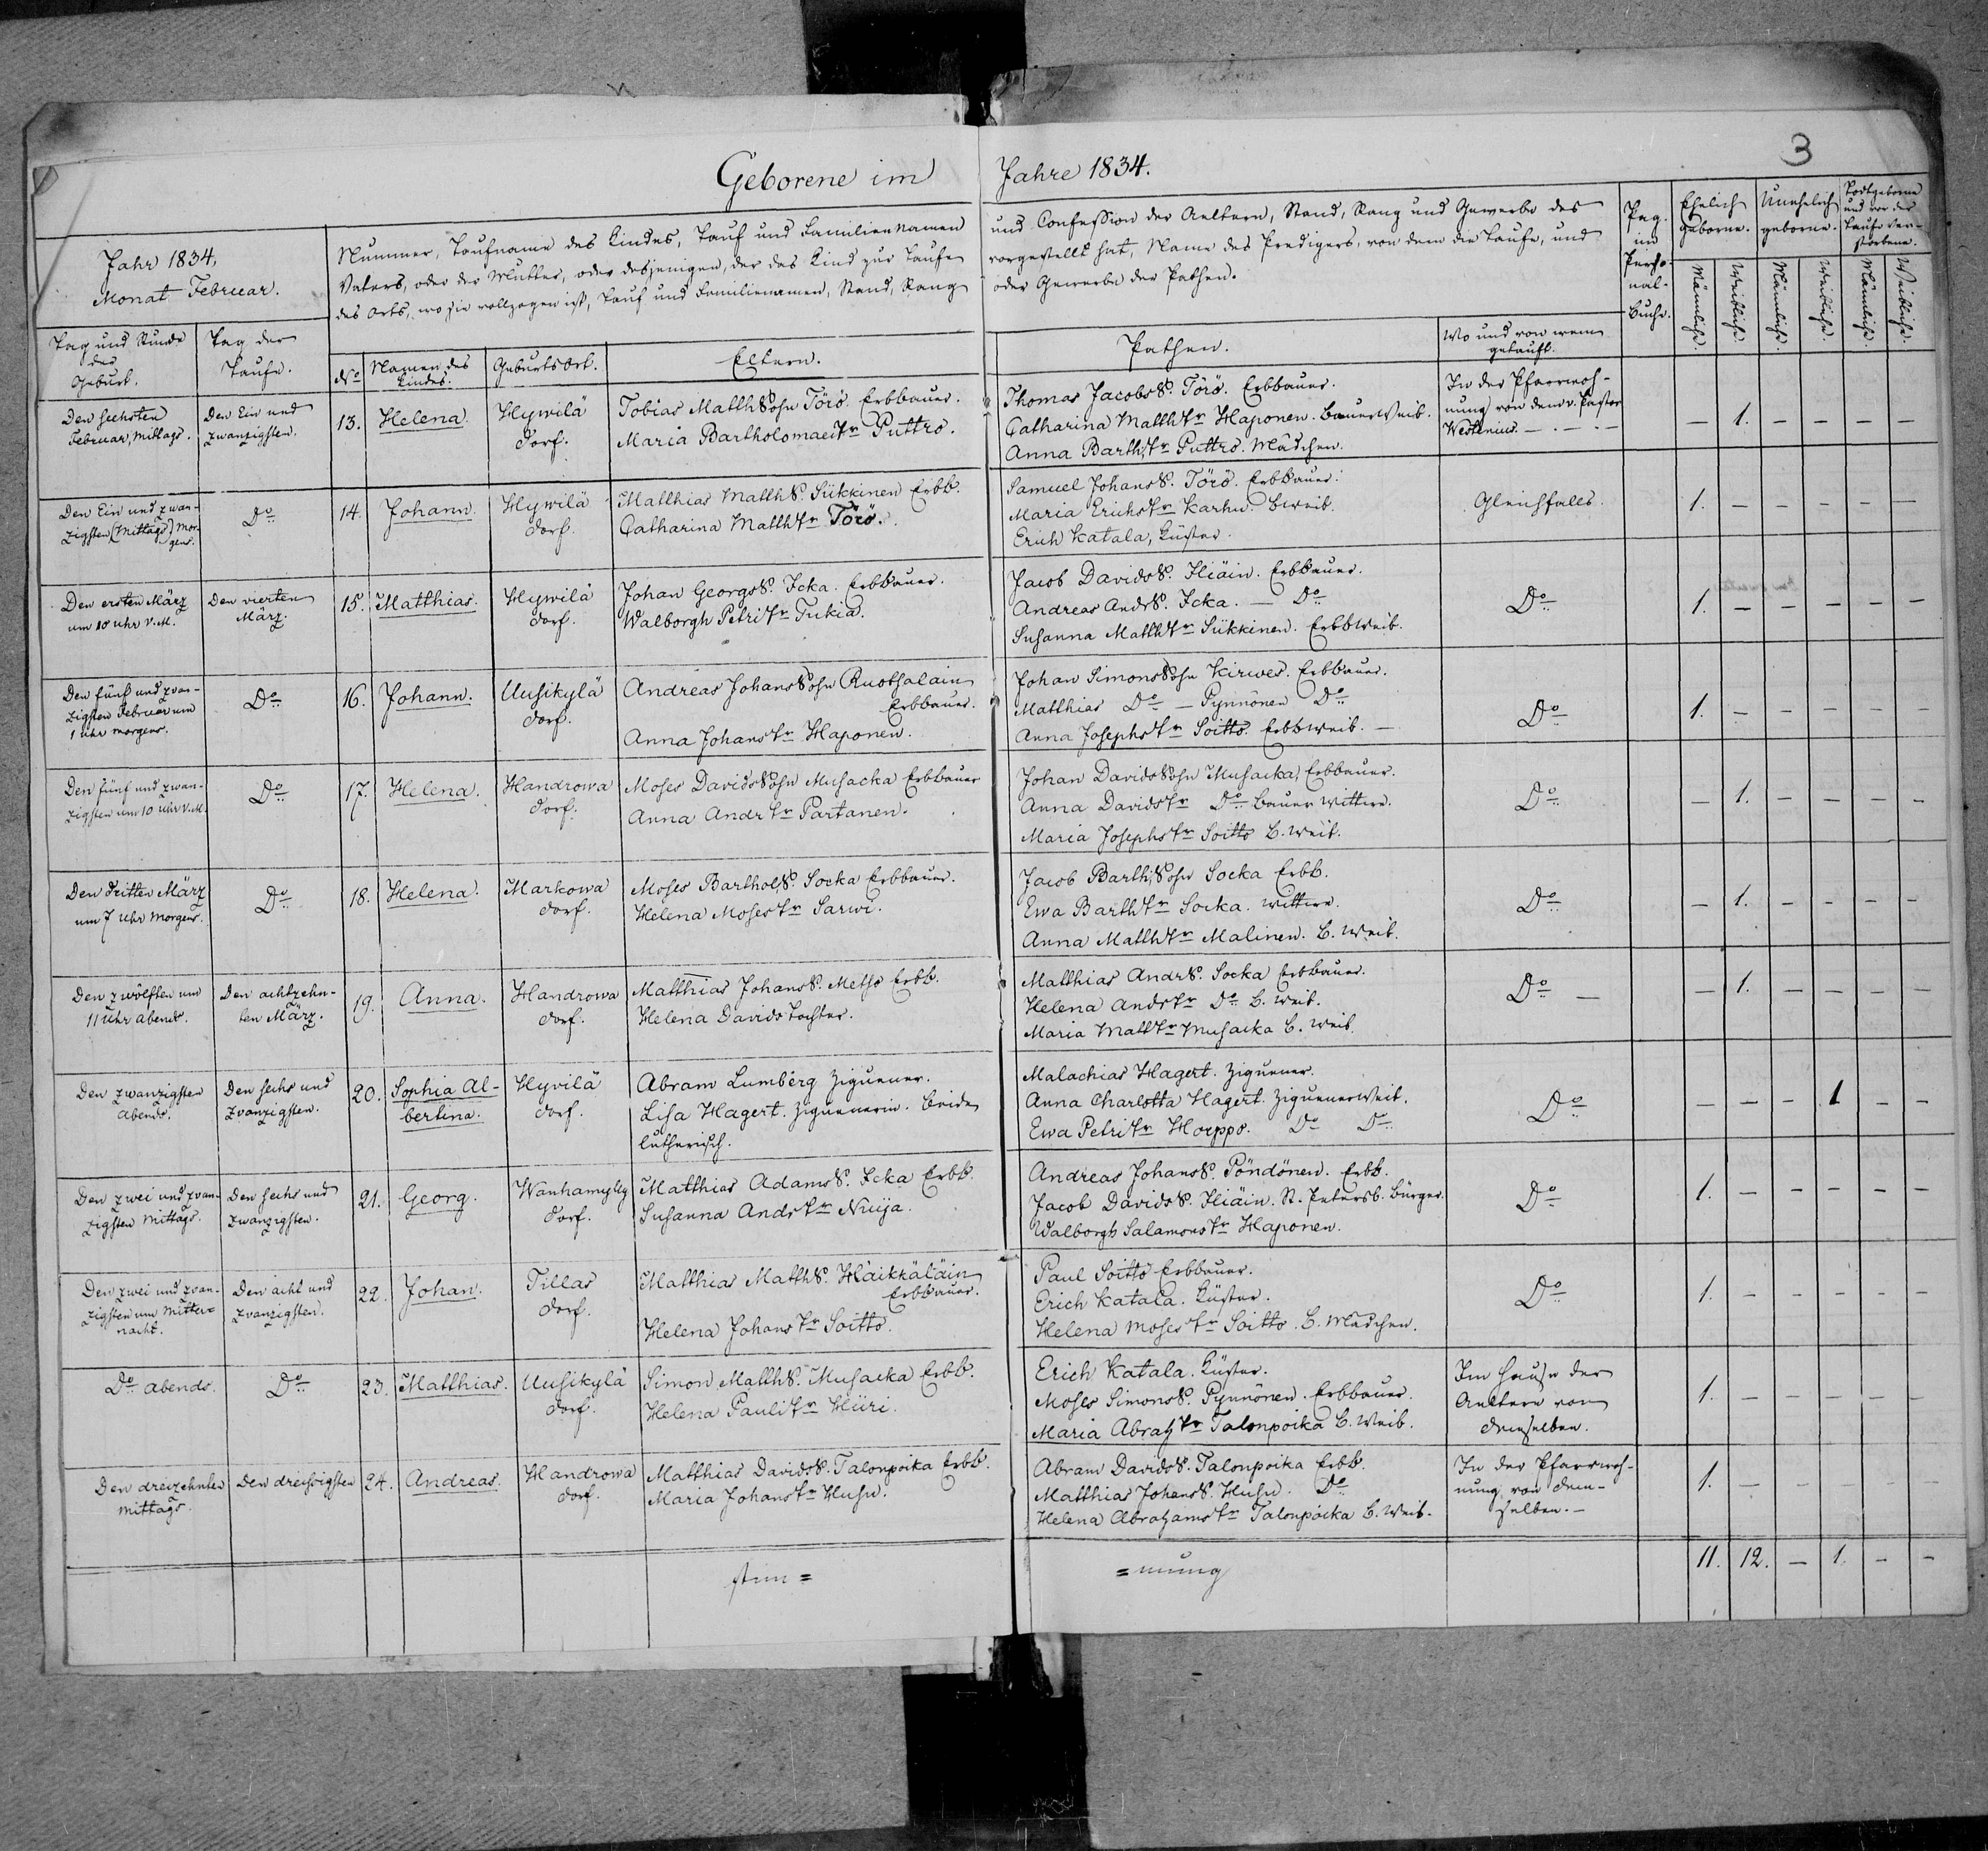 3
Geborene im Jahre 1834.
Jahr 1834,
Monat Februar.
Nummer, Taufname des Kindes, Tauf und Familiennamen
Vaters, oder der Mutter, oder desjenigen, der das Kind zur Taufe
des Orts, wo sie vollzogen ist, Tauf und Familiennamen, Stand, Rang
und Confession der Aeltern, Stand, Rang und Gewerbe des
vorgestellt hat, Name des Predigers, von dem die Taufe, und
oder Gewerbe der Pathen.
Pag.
im
Perso-
nal-
buche.
Ehelich
geborne.
Unehelich
geborne.
Todtgeborne
und vor der
Taufe ver-
storbene.
Männliche.
Weibliche.
Männliche.
Weibliche.
Männliche.
Weibliche.
Tag und Stunde
der
Geburt.
Tag der
Taufe.
No
Namen des
Kindes.
Geburts Ort.
Eltern.
Pathen.
Wo und von wem
getauft.
Den sechsten
Februar, Mittags.
Den Ein und
zwanzigsten.
13.
Helena.
Hywilä
dorf.
Tobias Matth Sohn Törö. Erbbauer.
Maria Bartholomaei Tr Puttro.
Thomas Jacobs S. Törö. Erbbauer.
Catharina Matth Tr Haponen. Bauer Weib.
Anna Barth. Tr Puttro. Mädchen.
In der Pfarrwoh-
nung von dem v. Pastor
Westlenius. — . — . —
— 1. — — — —
Den Ein und zwan-
zigsten (Mittags) Mor-
gens.
Do
14.
Johann.
Hywilä
dorf.
Matthias Matth S. Sükkinen Erbb.
Catharina Matth Tr Törö.
Samuel Johans S. Törö. Erbbauer.
Maria Erichs Tr Karhu. B Weib.
Erich Katala, Küster.
Gleichfalls.
1. — — — — —
Den ersten März
um 10 Uhr V.M.
Den vierten
März.
15.
Matthias.
Hywilä
dorf.
Johan Georgs S. Icka. Erbbauer.
Walborgh Petri Tr Tukia.
Jacob Davids S. Iliäin. Erbbauer.
Andreas Andr S. Icka. — Do
Susanna Matth Tr Sükkinen. Erbb Weib.
Do
1. — — — — —
Den fünf und zwan-
zigsten Februar um
1 Uhr morgens.
Do
16.
Johann.
Uusikylä
dorf.
Andreas Johans Sohn Ruotsalain
Erbbauer.
Anna Johans Tr Haponen.
Johan Simons Sohn Kirwes. Erbbauer.
Matthias Do — Pynnönen Do
Anna Josephs Tr Soitto. Erbb Weib. —
Do
1. — — — — —
Den fünf und zwan-
zigsten um 10 Uhr V.M.
Do
17.
Helena.
Handrowa
dorf.
Moses Davids Sohn Musacka Erbbauer
Anna Andr Tr Partanen.
Johan Davids Sohn Musacka, Erbbauer.
Anna Davids Tr Do Bauer Wittwe.
Maria Josephs Tr Soitto B. Weib.
Do
— 1. — — — —
Den dritten März
um 7 Uhr Morgens.
Do
18.
Helena.
Markowa
dorf.
Moses Barthol S. Socka Erbbauer.
Helena Moses Tr Sarwi.
Jacob Barth. Sohn Socka Erbb.
Ewa Barth Tr Socka. Wittwe.
Anna Matth Tr Malinen. B. Weib.
Do
— 1. — — — —
Den zwölften um
11 Uhr abends.
Den achtzehn-
ten März.
19.
Anna.
Handrowa
dorf.
Matthias Johans S. Metso Erbb.
Helena Davids Tochter.
Matthias Andr S. Socka Erbbauer.
Helena Andr Tr Do B. Weib.
Maria Matth Tr Musacka B. Weib.
Do —
— 1. — — — —
Den zwanzigsten
Abends.
Den sechs und
zwanzigsten.
20.
Sophia Al-
bertina.
Hyvilä
dorf.
Abram Lumberg Ziguener.
Lisa Hagert. Ziguenerin. beide
lutherisch.
Malachias Hagert. Ziguener.
Anna Charlotta Hagert. Ziguener Weib.
Ewa Petri Tr Horppo. Do Do
Do
— — — 1 — —
Den zwei und zwan-
zigsten Mittags.
Den sechs und
zwanzigsten.
21.
Georg.
Wanhamylly
dorf.
Matthias Adams S. Icka Erbb.
Susanna Andr Tr Niija.
Andreas Johans S. Pöndönen. Erbb.
Jacob Davids S. Iliäin. St. Petersb. Bürger.
Walborgh Salamons Tr Haponen.
Do
1. — — — — —
Den zwei und zwan-
zigsten um Mitter-
nacht.
Den acht und
zwanzigsten.
22.
Johan.
Tillas
dorf.
Matthias Matth S. Haikkäläin
Erbbauer.
Helena Johans Tr Soitto.
Paul Soitto Erbbauer.
Erich Katala. Küster.
Helena Moses Tr Soitto. B. Mädchen.
Do
1. — — — — —
Do abends.
Do
23.
Matthias.
Uusikylä
dorf.
Simon Matth S. Musacka Erbb.
Helena Pauli Tr Hüri.
Erich Katala. Küster.
Moses Simons S. Pynnönen. Erbbauer.
Maria Abrah Tr Talonpoika B. Weib.
Im Hause der
Aeltern von
demselben.
1. — — — — —
Den dreizehnten
Mittags.
Den dreissigsten
24.
Andreas.
Handrowa
dorf.
Matthias Davids S. Talonpoika Erbb.
Maria Johans Tr Husu.
Abram Davids S. Talonpoika Erbb.
Matthias Johans S. Husu. Do
Helena Abrahams Tr Talonpoika B. Weib.
In der Pfarrwoh-
nung von dem-
selben. —
1. — — — — —
11. 12. — 1. — —